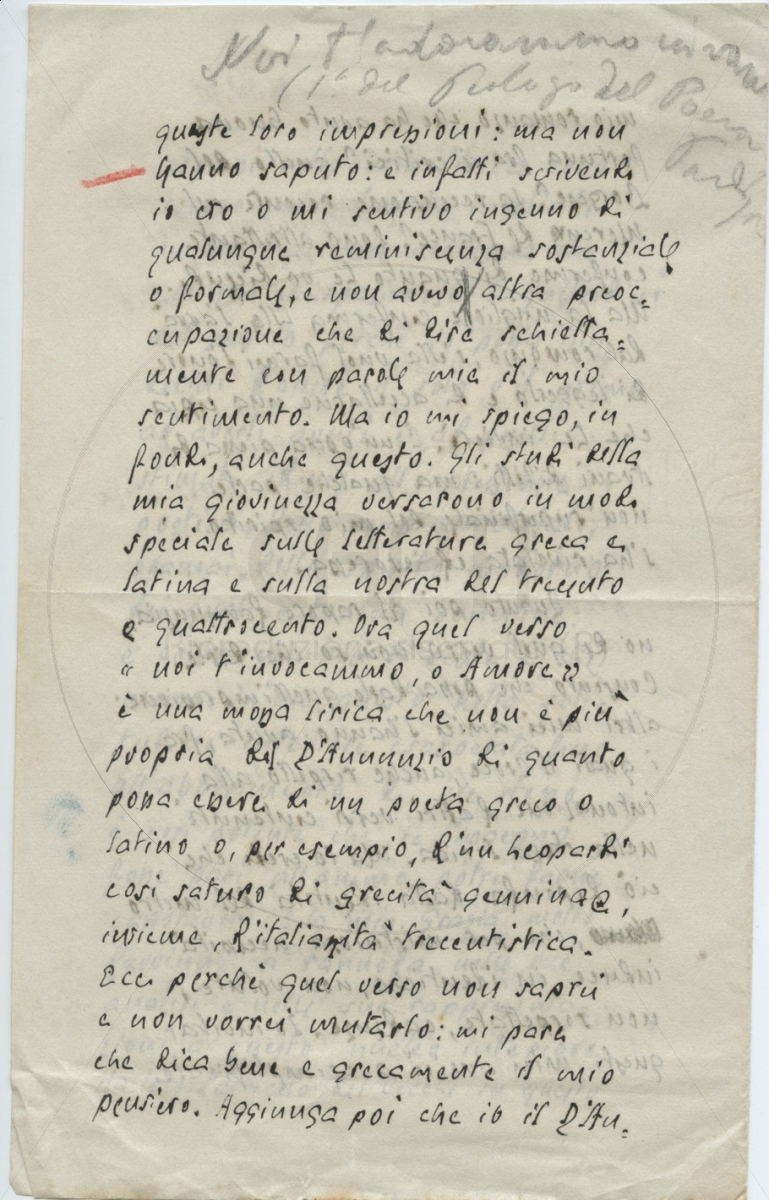 Noi t'adorammo invano
(1° del Prologo del Poema
queste loro impressioni: ma non
hanno saputo: e infatti scrivendo
io ero o mi sentivo ingenuo di
qualunque reminiscenza sostanziale
o formale, e non avevo altra preoc=
cupazione che di dire schietta=
mente con parole mie il mio
sentimento. Ma io mi spiego, in
fondo, anche questo. Gli studi della
mia giovinezza versarono in modo
speciale sulle letterature greca e
latina e sulla nostra del trecento
e quattrocento. Ora quel verso
« noi t'invocammo, o Amore »
è una mossa lirica che non è più
propria del D'Annunzio di quanto
possa essere di un poeta greco o
latino o, per esempio, d'un Leopardi
così saturo di grecità genuina e,
insieme, d'italianità trecentistica.
Ecco perchè quel verso non saprei
e non vorrei mutarlo: mi pare
che dica bene e grecamente il mio
pensiero. Aggiunga poi che io il D'An=